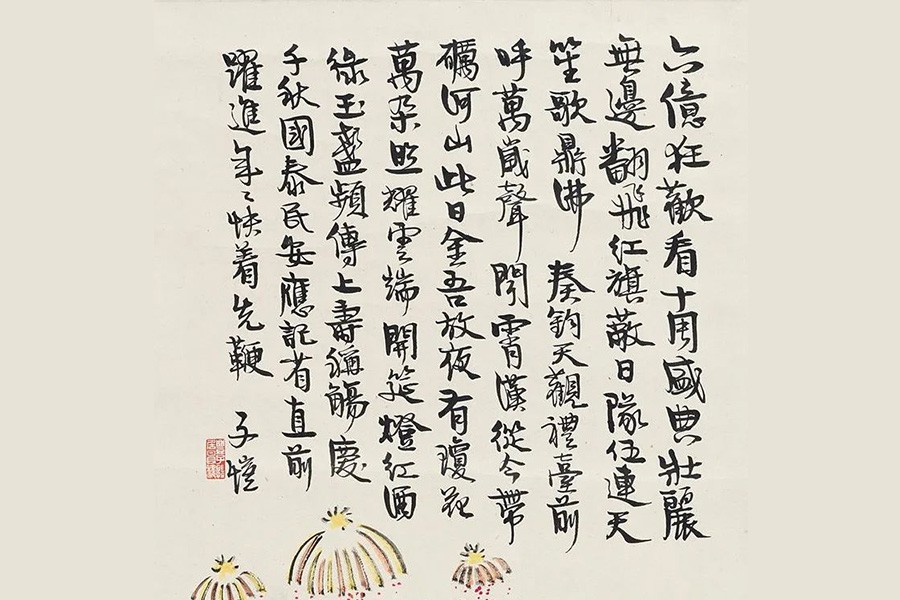 六億狂歡看十周盛典壯麗
無邊翻飛紅旗蔽日隊伍連天
笙歌鼎沸奏鈞天觀禮臺前
呼萬歲聲聞霄漢從今帶
礪河山此日金吾放夜有瓊花
萬朵照耀雲端開筵燈紅酒
綠玉盞頻傳上壽稱觴慶
千秋國泰民安應記省直前
躍進年〻快着先鞭 子愷